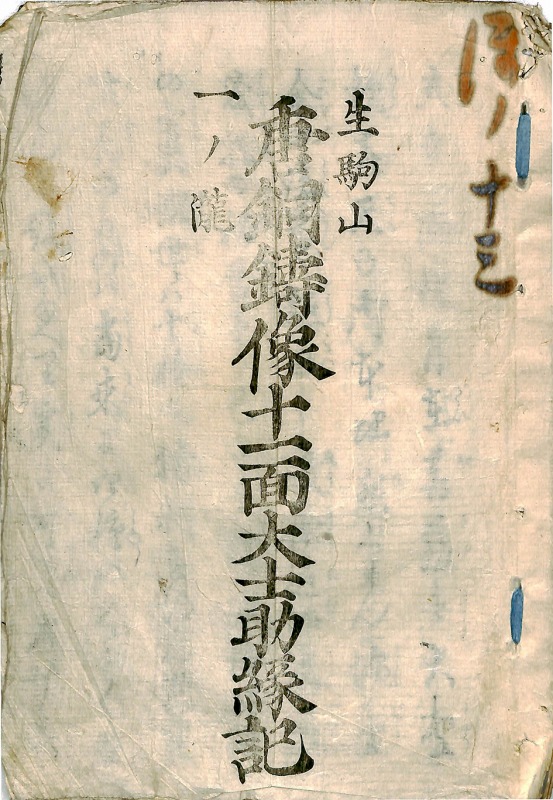 ノ十三
生駒山
唐銅鋳像十一面大士助縁記
一ノ瀧